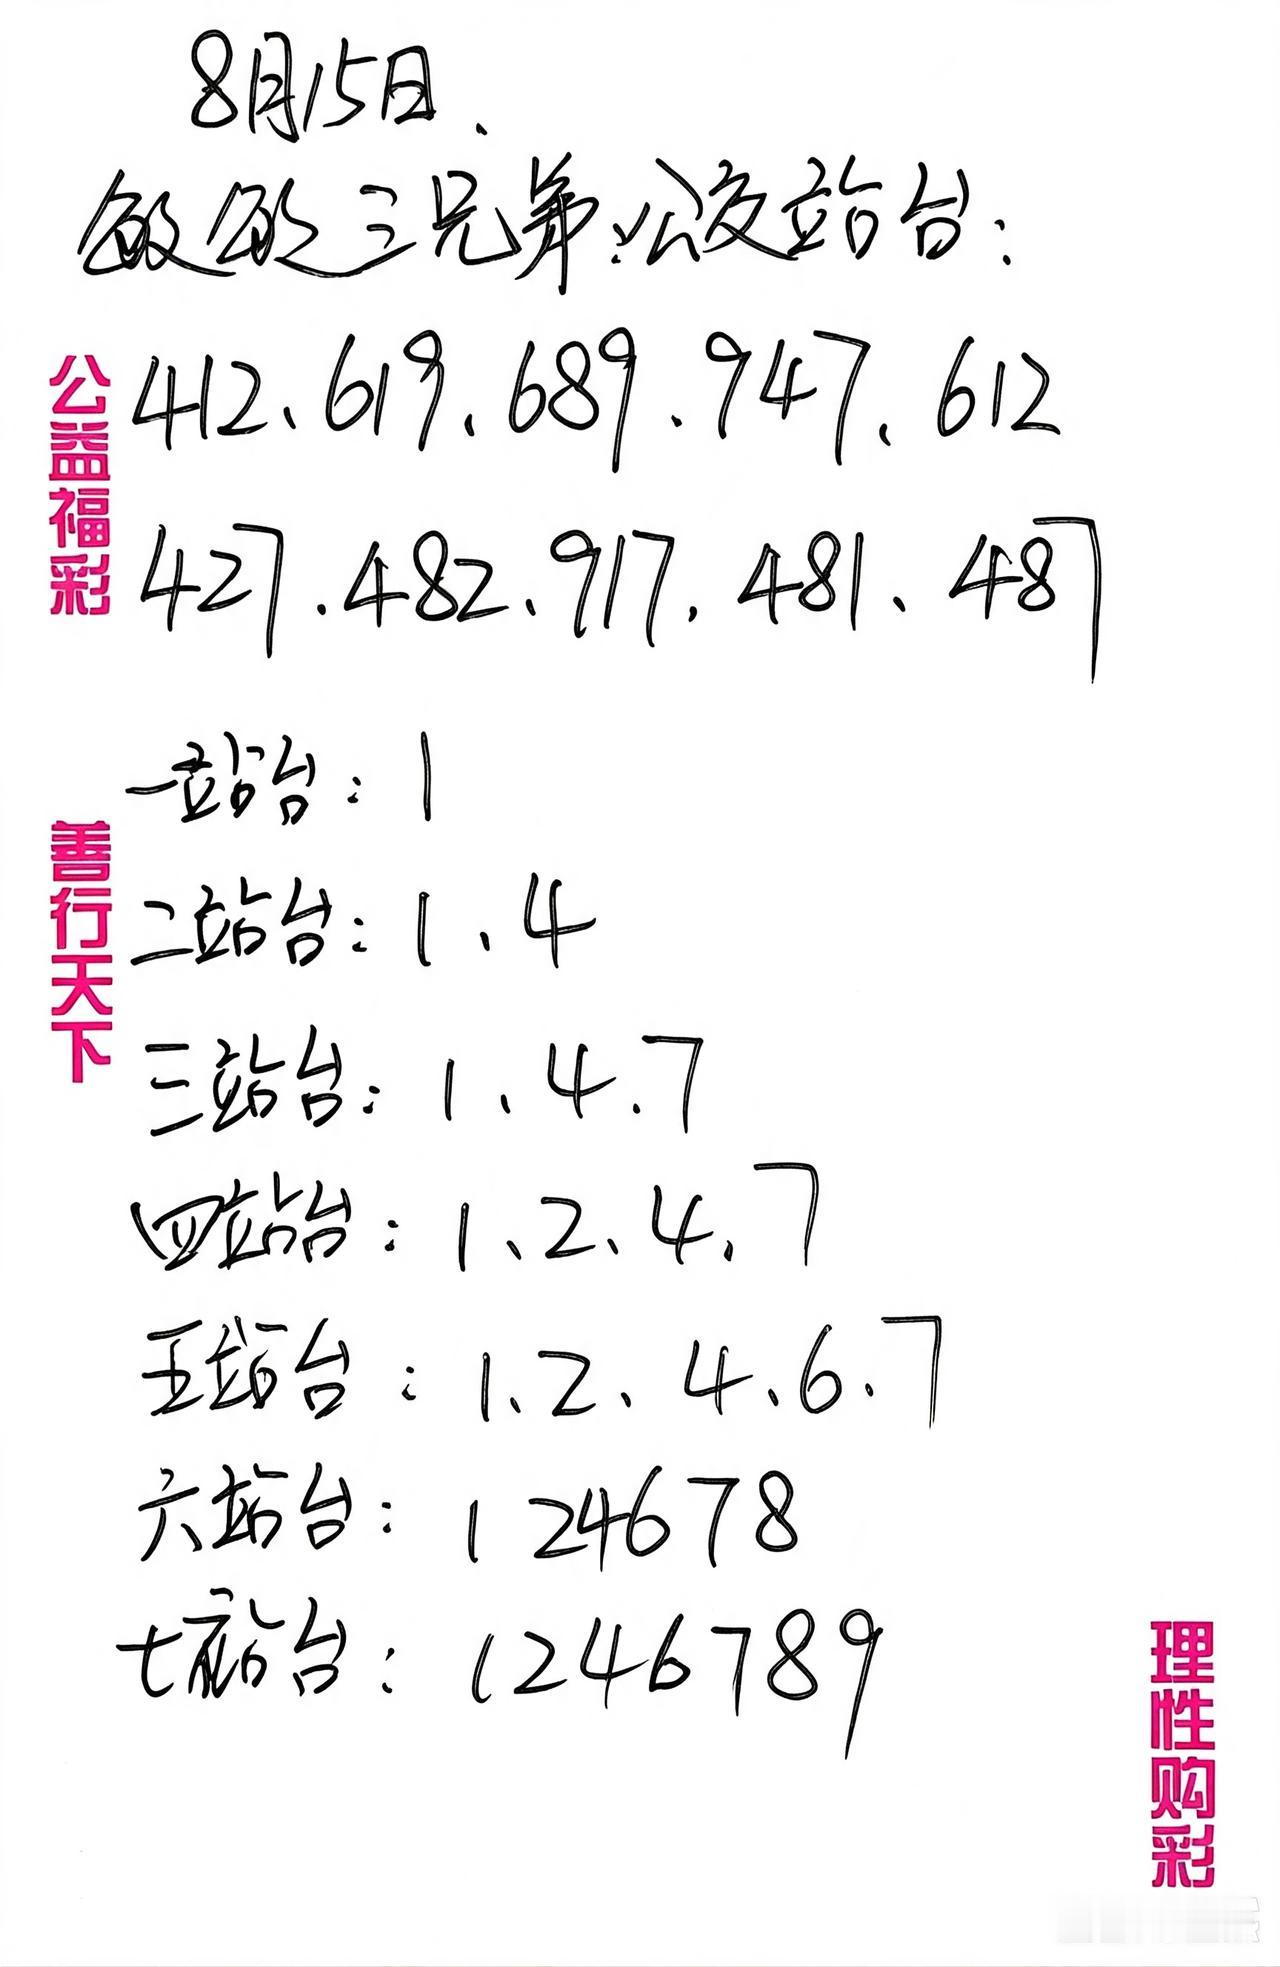 8月15日、
敏敏三兄弟:公交站台:
412、619、689、947、612
427、482、917、481、487
一站台:1
二站台:1、4
三站台:1、4.7
四站台:1、2、4、7
五站台:1、2、4、6、7
六站台:124678
七站台:1246789
公益福彩
善行天下
理性购彩